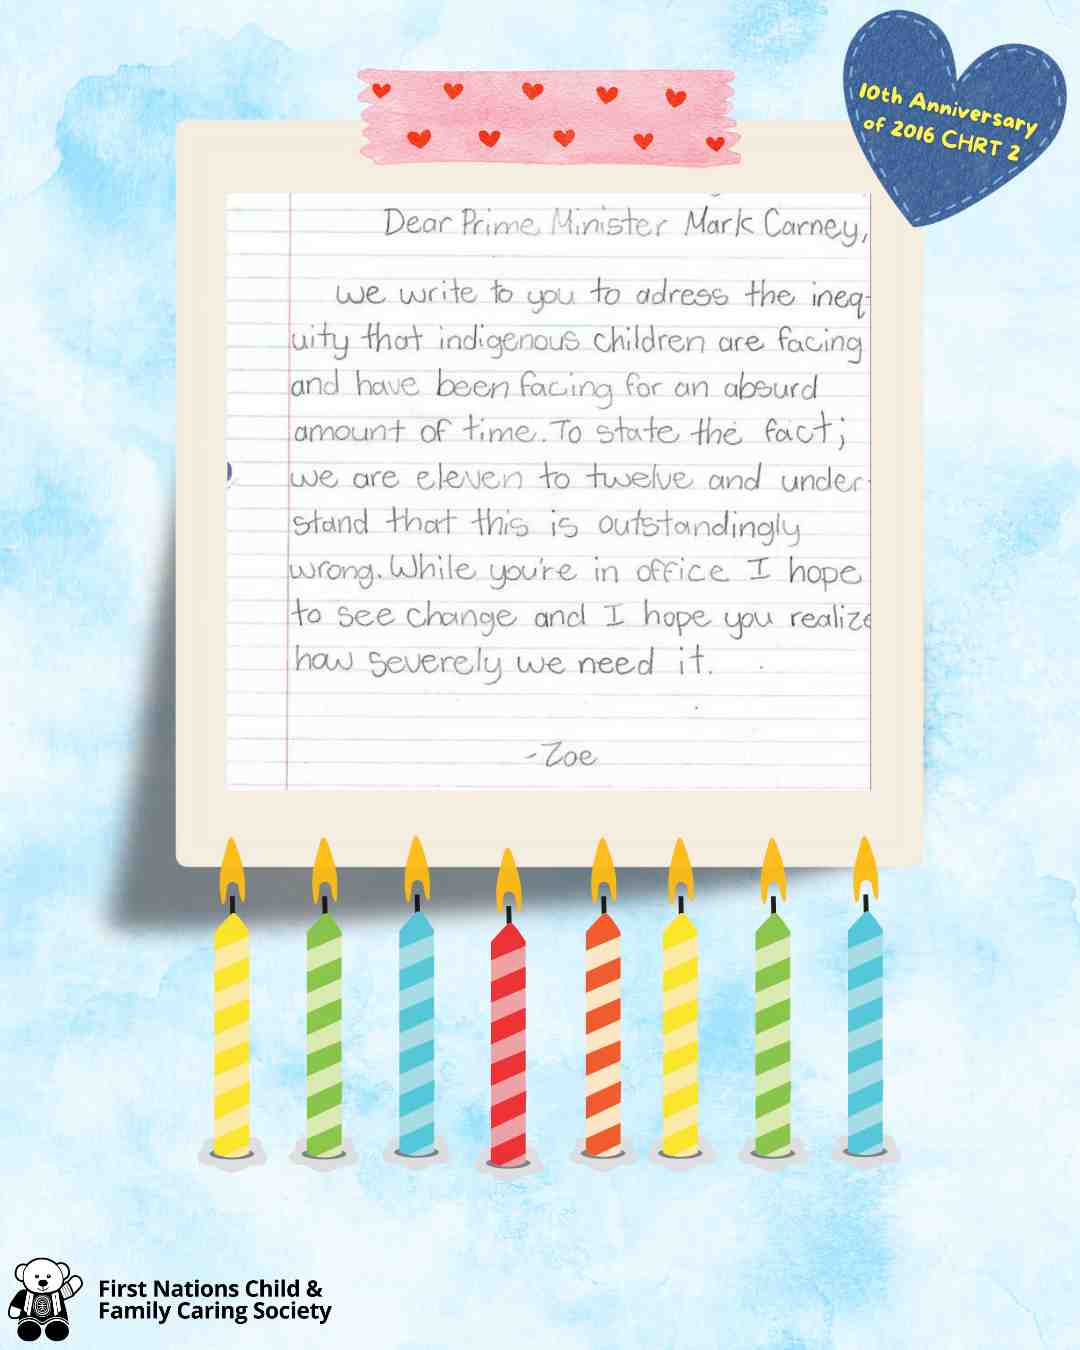 10th Anniversary
of 2016 CHRT 2
Dear Prime Minister Mark Carney,
we write to you to adress the ineq-
uity that indigenous children are facing
and have been facing for an absurd
amount of time. To state the fact;
we are eleven to twelve and under-
stand that this is outstandingly
wrong. While you're in office I hope
to see change and I hope you realize
how severely we need it.
-Zoe
First Nations Child &
Family Caring Society